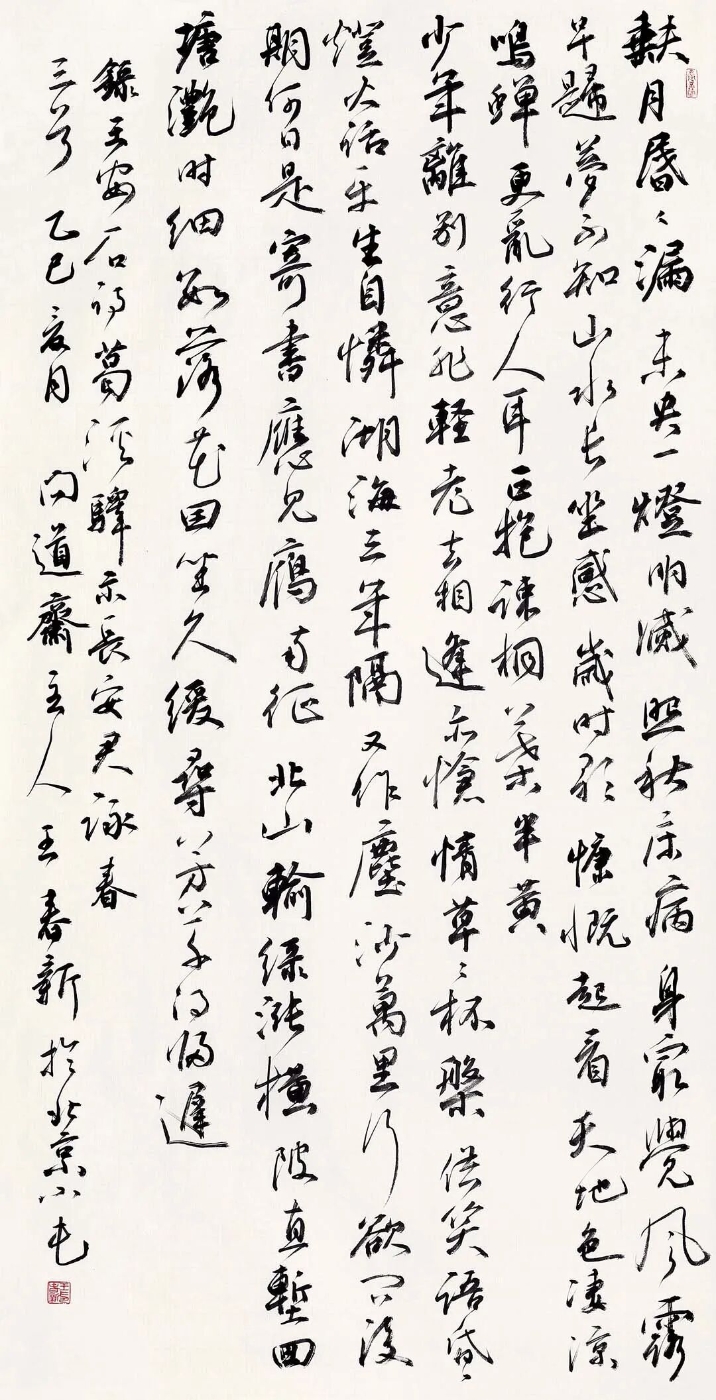 缺月昏々漏未央一燈明滅照秋床病身最覺風露
早歸夢不知山水長坐感歲時歌慷慨起看天地色淒涼
鳴蟬更亂行人耳正抱疎桐葉半黃
少年離別意非輕老去相逢亦愴情草々杯盤供笑語昏々
燈火話平生自憐湖海三年隔又作塵沙萬里行欲問後
期何日是寄書應見雁南征北山輸綠漲橫陂直塹回
塘灩灩時細數落花因坐久緩尋芳草得歸遲
錄王安石詩葛溪驛示長安君詠春
三首乙巳夏月問道齋主人王春新於北京小屯